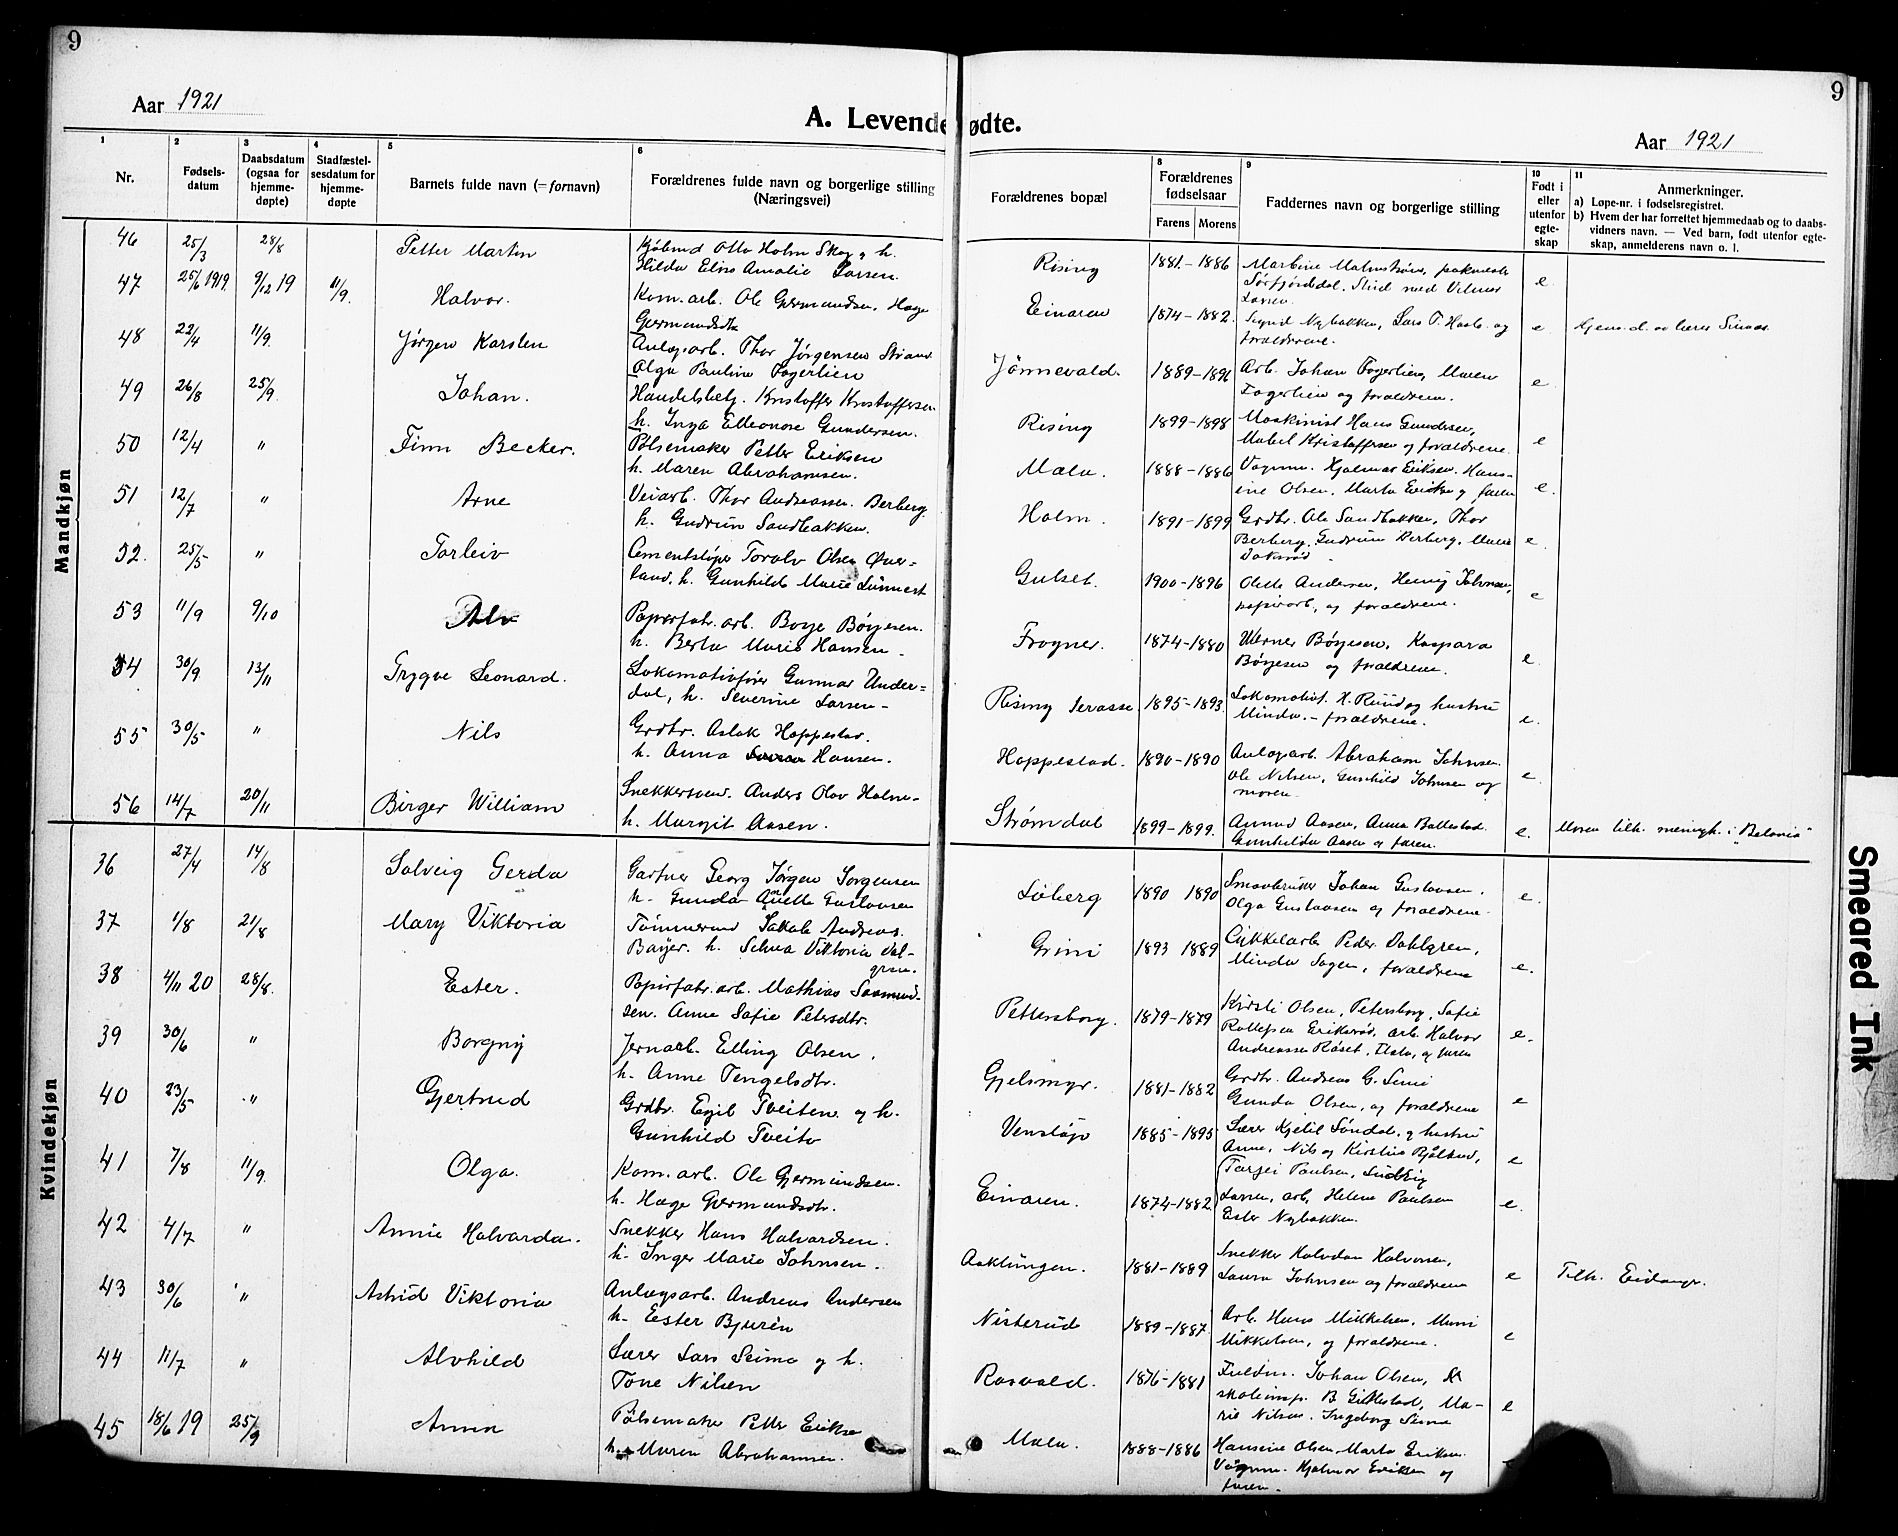 9
9
Aar 1921
A. Levendefødte.
Aar 1921
1 Nr.
2 Fødsels-datum
3 Daabsdatum (ogsaa for hjemme-døpte)
4 Stadfæstel-sesdatum for hjemme-døpte
5 Barnets fulde navn (= fornavn)
6 Forældrenes fulde navn og borgerlige stilling (Næringsvei)
Forældrenes bopæl
8 Forældrenes fødselsaar
Farens Morens
9 Faddernes navn og borgerlige stilling
10 Født i eller utenfor egte-skap
11 Anmerkninger.
a) Løpe-nr. i fødselsregistret.
b) Hvem der har forrettet hjemmedaab og to daabs-vidners navn. — Ved barn, født utenfor egte-skap, anmelderens navn o. l.
Mandkjøn
46 25/3 28/8 Petter Martin Otto Holm Skog, h.
Hilda Elise Amalie Larsen. Rising 1881-1886 Martine Malmstrøm,
Sørfjorddal, med Vilmar
Larsen. e.
47 25/6 1919. 9/12 19 11/9. Halvor. Kom. arb. Ole Gjermundsen, Hæge
Gjermundsdtr. Einaren 1874-1882. Sigrid Nybakken, Lars T. og
forældrene. e
48 22/4 11/9. Jørgen Karsten Anlægsarb. Thor Jørgensen Strand
Olga Pauline Fagerlien Jønnevald. 1889-1896 Arb. Johan Fagerlien, Maren
Fagerlien og forældrene. e
49 26/8 25/9. Johan. Handelsbetj. Kristoffer Kristoffersen
h. Inga Elleonore Gundersen. Rising 1899-1898 Maskinist Hans Gundersen,
Mabel Kristoffersen og forældrene. e
50 12/4 " Finn Becker. Pølsemaker Petter Eriksen
h. Maren Abrahamsen. Mæla. 1888-1886 Vognm. Hjalmar Eriksen. Hans-
ine Olsen, Marta Eriksen og faren e.
51 12/7 " Arne Veiarb. Thor Andreassen Berberg
h. Gudrun Sandbakken. Holm. 1891-1899 Grdbr. Ole Sandbakken, Thor
Berberg, Gudrun Berberg, Maren e.
52. 25/5 " Torleiv Cementstøper Toralv Olsen Øver=
land, h. Gunhild Marie Lunnest Gulset. 1900-1896 Olette Andersen, Henry Johnsen,
papirarb., og forældrene. e
53 11/9 9/10 Alv Papirfabr. arb. Borge Børgesen.
h. Berta Marie Hansen. Frogner. 1874-1880 Werner Børgesen, Kaspara
Børgesen og forældrene. e.
54 30/9 13/11 Trygve Leonard. Lokomotivfører Gunnar Under=
dal, h. Severine Larsen - Rising terasse 1895-1893. Lokomotivf. H. Ruud og hustru
Minda. - forældrene. e.
55 30/5 " Nils Grdbr. Aslak Hoppestad.
h. Anna Hansen. Hoppestad. 1890-1890 Anlægsarb. Abraham Johnsen
Ole Nilsen, Gunhild Johnsen og
moren e.
56 14/7 20/11 Birger William Snekkersvend. Anders Olav Holm-
h. Margit Aasen. Strømdal 1899-1899. Amund Aasen, Anna Ballestad.
Gunhilda Aasen og faren. e. Moren tilh. menigh. i "Betania"
Kvindekjøn
36 27/4 14/8 Solveig Gerda Gartner Georg Jørgen Jørgensen
h. Gunda Anette Gustavsen Liøberg 1890 1890 Smaabruker Johan Gustavsen.
Olga Gustavsen og forældrene. e.
37 1/8 21/8 Mary Viktoria Tømmermd Jakob Andreas.
Bayer. h. Selma Viktoria Dal-
gren. Grini 1893 1889 Cykkelarb. Peder Dahlgren,
Minda Sagen, forældrene e.
38 4/11 20 28/8. Ester. Papirfabr. arb. Mathias Saamund-
sen. Anne Sofie Petersdtr. Pettersborg. 1879-1879 Kirsti Olsen, Petersborg, Sofie
Rollefsen Eriksrød, arb. Halvor
Andreassen Røset, og faren e.
39 30/6 " Borgny Jernarb. Elling Olsen.
h. Anne Tengelsdtr. Gjelsmyr. 1881-1882 Grdbr. Andreas C.
Gunda Olsen, og forældrene e
40 23/5 " Gjertrud Grdbr. Egil Tveiten og h.
Gunhild Tveito Venstøp 1885-1895 Lærer Kjetil Søndal. og hustru
Anne, Nils og Kirstine
e
41 7/8 11/9. Olga. Kom. arb. Ole Gjermundsen.
h. Hæge Gjermundsdtr. Einaren. 1874-1882 Torgei Paulsen, Ludvig
Larsen, arb, Helene Paulsen
Ester Nybakken. e.
42 4/7 " Annie Halvarda. Snekker Hans Halvardsen.
h. Inger Marie Johnsen. Aaklungen. 1881-1889 Snekker Halvdan Halvorsen,
Laura Johnsen og forældrene e Tilh. Eidanger.
43 30/6 " Astrid Viktoria Anlægsarb. Andreas Andersen
h. Ester Bjurén Nisterud 1889-1887 Arb. Hans Mikkelsen,
Mikkelsen, og forældrene. e
44 11/7 " Alvhild Lærer Lars Seime og h.
Tone Nilsen Rasvald. 1876-1881 Johan Olsen,
skoleinsp. B. Gittestad, Ma-
rie Nilsen. Ingeborg Seime e
45 18/6 19 25/9 Anna Pølsemaker Petter Eriksen
h. Maren Abrahamsen. Mæla. 1888-1886 Hansine Olsen, Marta Eriksen
Vognm. Hjalmar Eriksen og
faren.
Smeared Ink